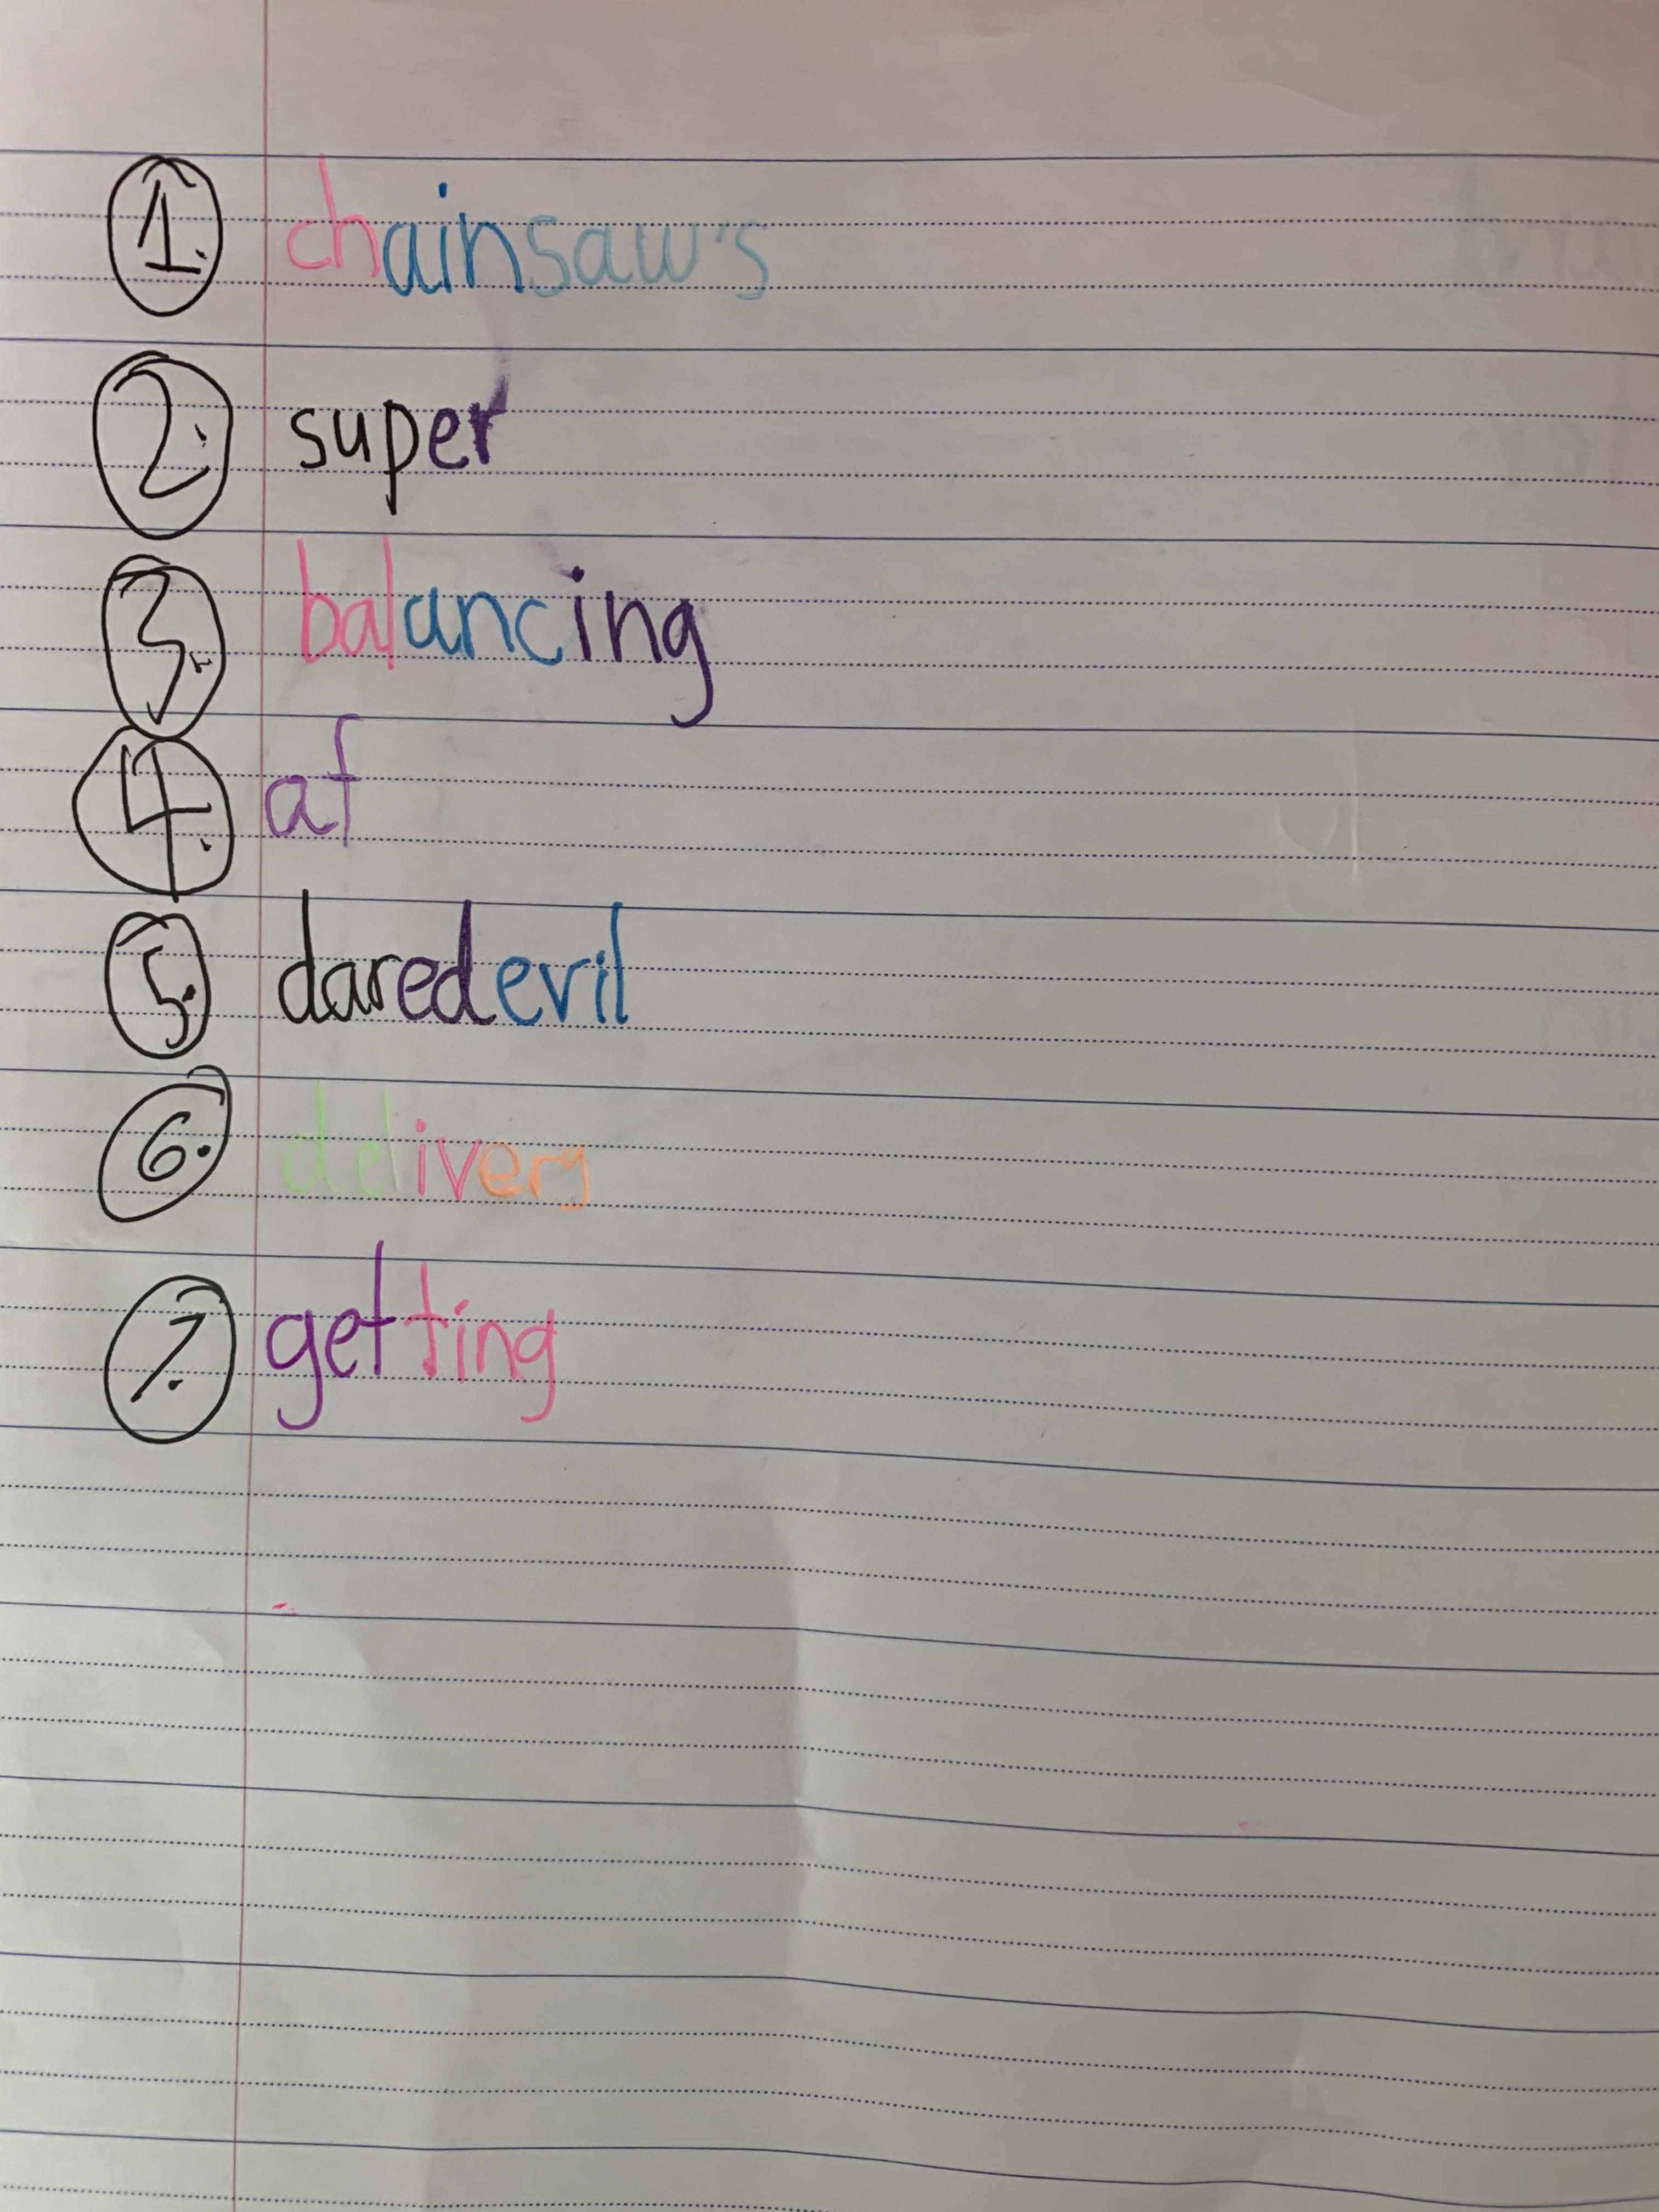 1. chainsaw's
2. super
3. balancing
4. af
5. daredevil
6. delivery
7. getting